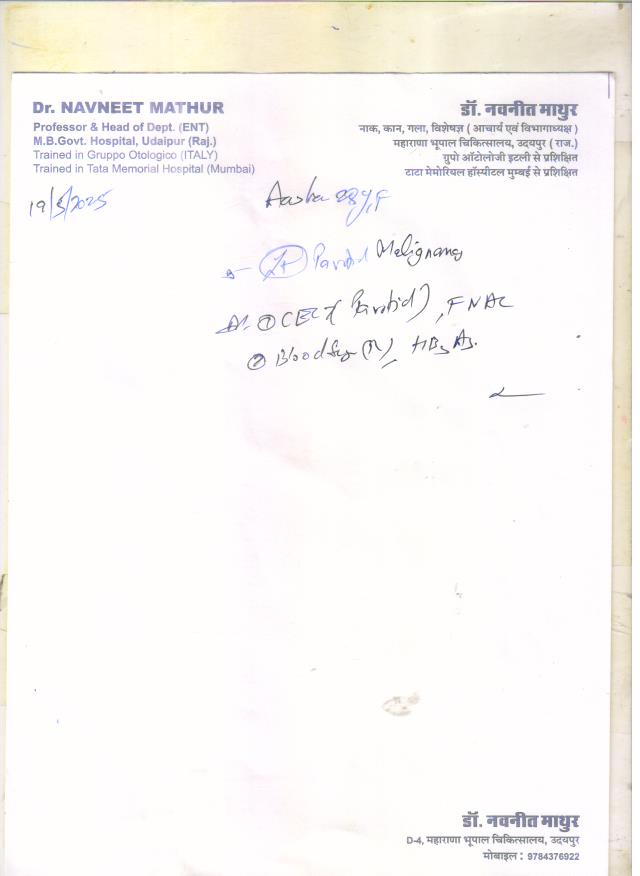 Dr. NAVNEET MATHUR
Professor & Head of Dept. (ENT)
M.B.Govt. Hospital, Udaipur (Raj.)
Trained in Gruppo Otologico (ITALY)
Trained in Tata Memorial Hospital (Mumbai)
डॉ. नवनीत माथुर
नाक, कान, गला, विशेषज्ञ ( आचार्य एवं विभागाध्यक्ष )
महाराणा भूपाल चिकित्सालय, उदयपुर ( राज.)
ग्रुपो ऑटोलोजी इटली से प्रशिक्षित
टाटा मेमोरियल हॉस्पीटल मुम्बई से प्रशिक्षित
19/5/2025
28y, F
Parotid Malignancy
① (Parotid), FNAC
② Blood HBsAg.
डॉ. नवनीत माथुर
D-4, महाराणा भूपाल चिकित्सालय, उदयपुर
मोबाइल : 9784376922